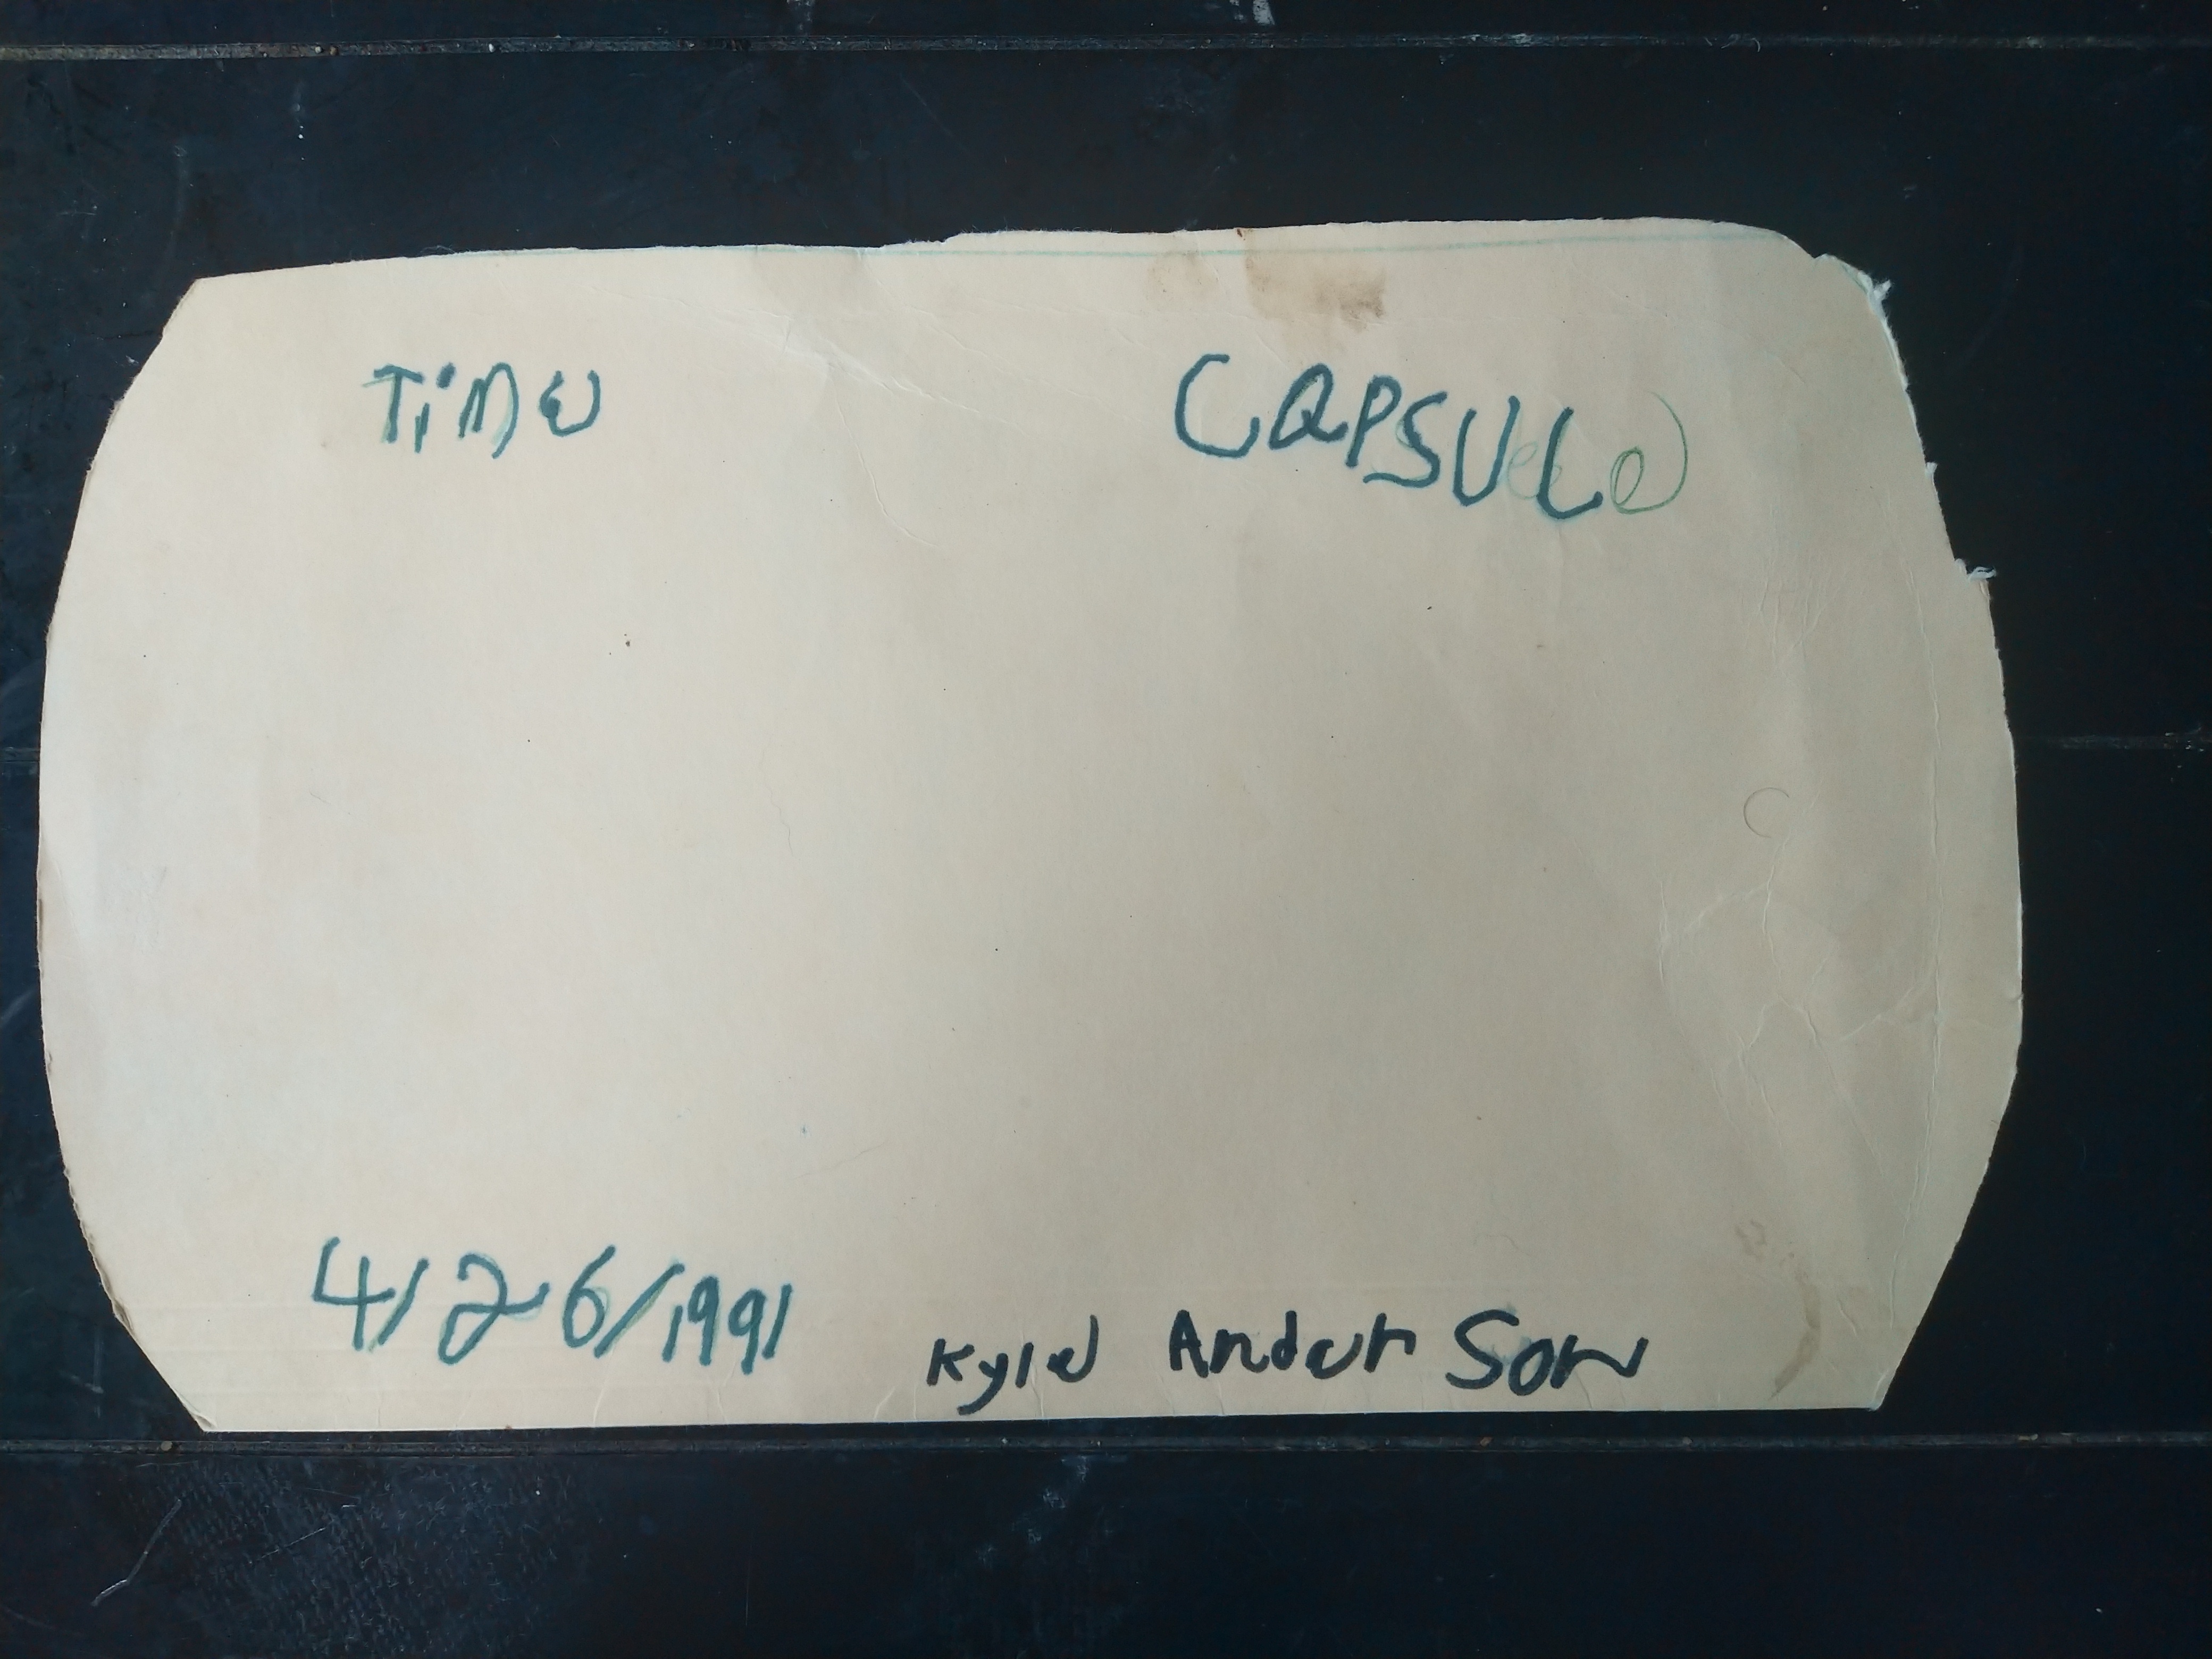 Time CAPSULe
4/26/1991 Kyle Anderson